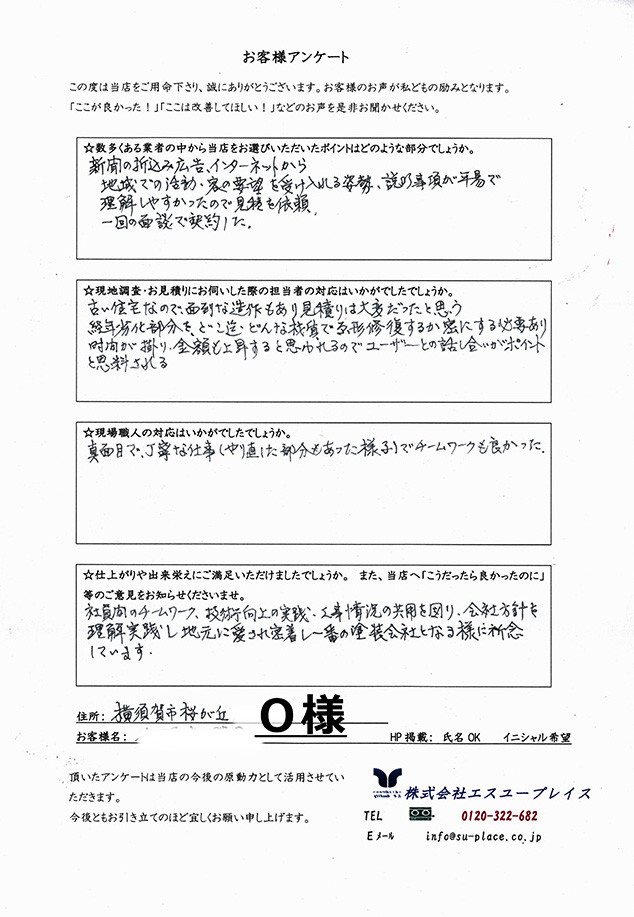 お客様アンケート
この度は当店をご用命下さり、誠にありがとうございます。お客様のお声が私どもの励みとなります。
「ここが良かった！」「ここは改善してほしい！」などのお声を是非お聞かせください。
☆数多くある業者の中から当店をお選びいただいたポイントはどのような部分でしょうか。
新聞の折込み広告、インターネットから
地域での活動、客の要望を受け入れる姿勢、説明事項が平易で
理解しやすかったので見積を依頼、
一回の面談で契約した。
☆現地調査・お見積りにお伺いした際の担当者の対応はいかがでしたでしょうか。
古い住宅なので、面倒な造作もあり見積りは大変だったと思う
経年劣化部分を、どこ迄、どんな材質で原形修復するか密にする必要あり
時間が掛り、金額も上昇すると思われるのでユーザーとの話し合いがポイント
と思料される
☆現場職人の対応はいかがでしたでしょうか。
真面目で、丁寧な仕事（やり直した部分もあった様子）でチームワークも良かった。
☆仕上がりや出来栄えにご満足いただけましたでしょうか。 また、当店へ「こうだったら良かったのに」
等のご意見をお知らせくださいませ。
社員間のチームワーク、技術向上の実践、工事情況の共用を図り、会社方針を
理解実践し地元に愛され密着し一番の塗装会社となる様に祈念
しています。
住所： 横須賀市桜が丘
お客様名： O様 HP掲載： 氏名OK イニシャル希望
頂いたアンケートは当店の今後の原動力として活用させてい
ただきます。
今後ともお引き立てのほど宜しくお願い申し上げます。
株式会社エスユープレイス
TEL 0120-322-682
Eメール info@su-place.co.jp